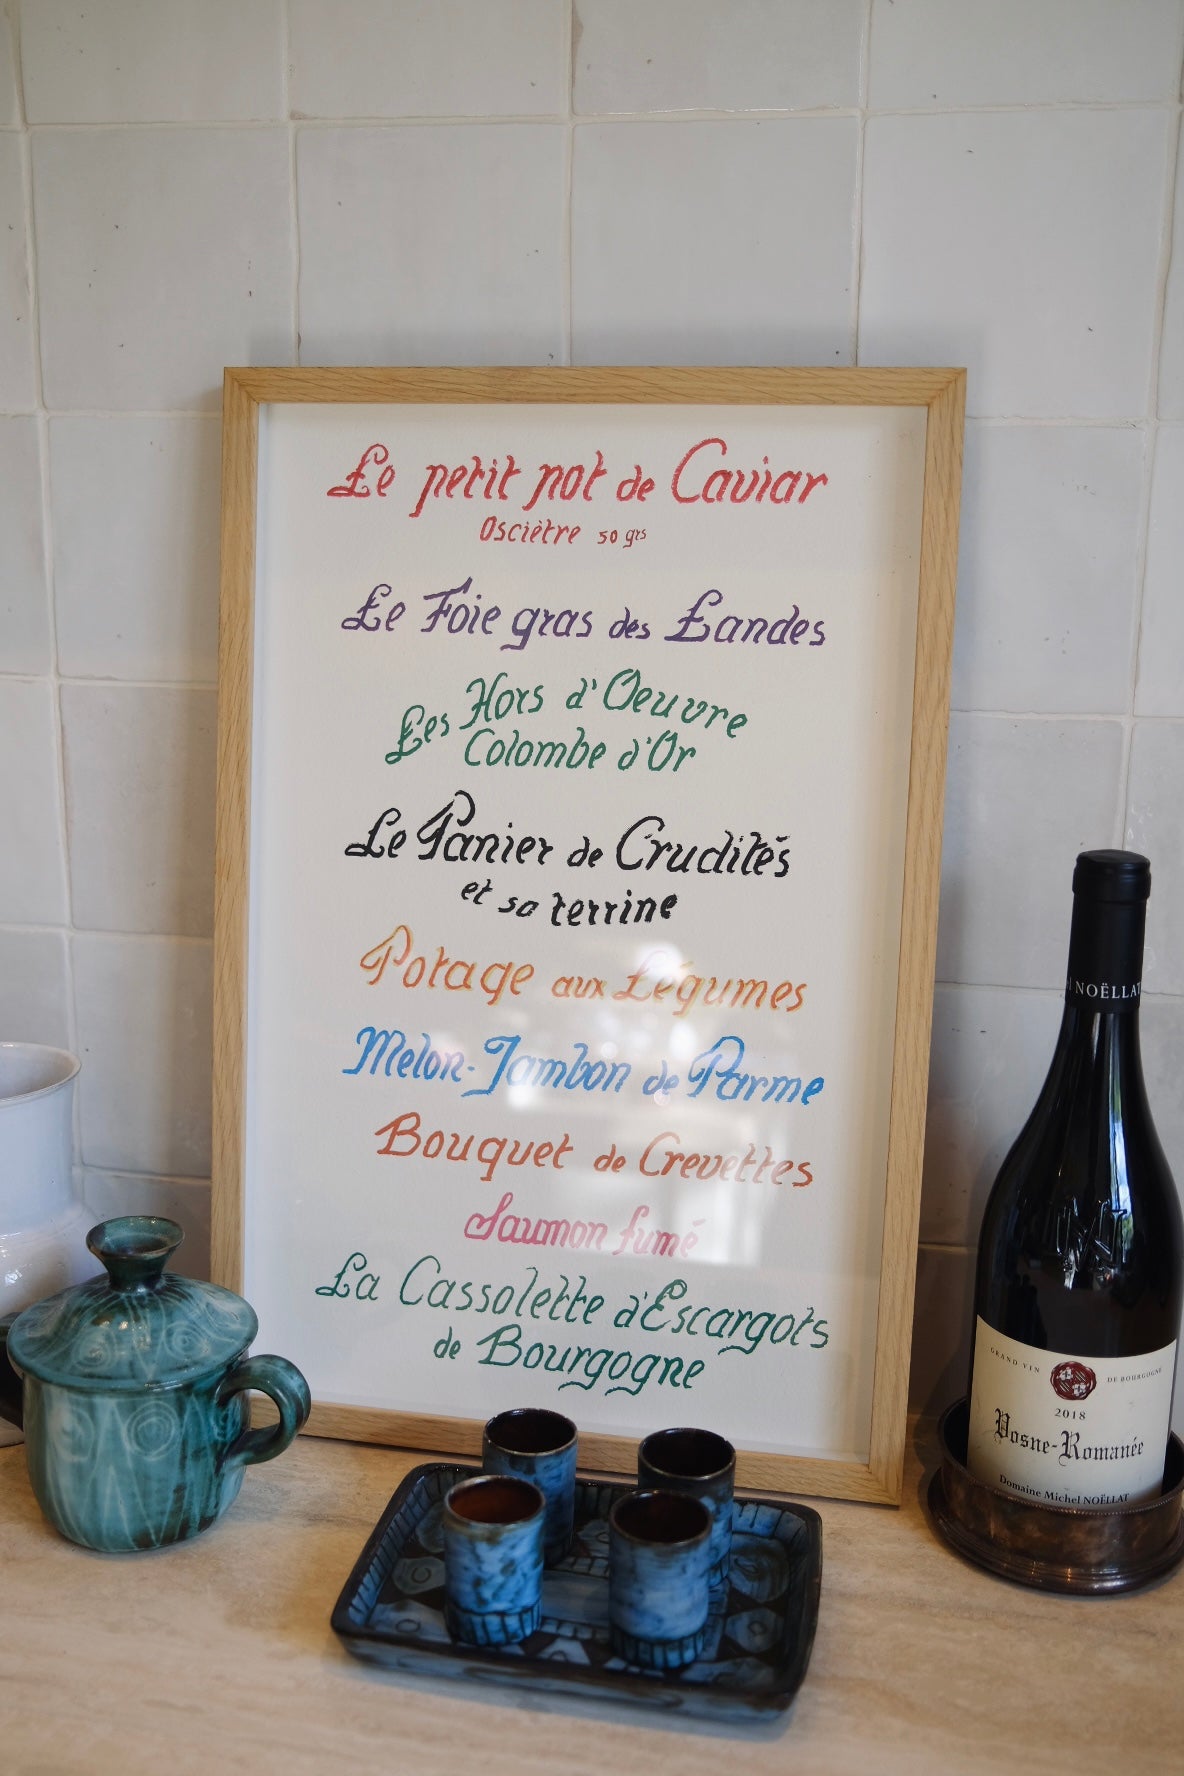 Le petit pot de Caviar
Osciètre 50 grs
Le Foie gras des Landes
Les Hors d'Oeuvre
Colombe d'Or
Le Panier de Crudités
et sa terrine
Potage aux Légumes
Melon-Jambon de Parme
Bouquet de Crevettes
Saumon fumé
La Cassolette d'Escargots
de Bourgogne
NOËLLAT
GRAND VIN DE BOURGOGNE
2018
Vosne-Romanée
Domaine Michel NOËLLAT